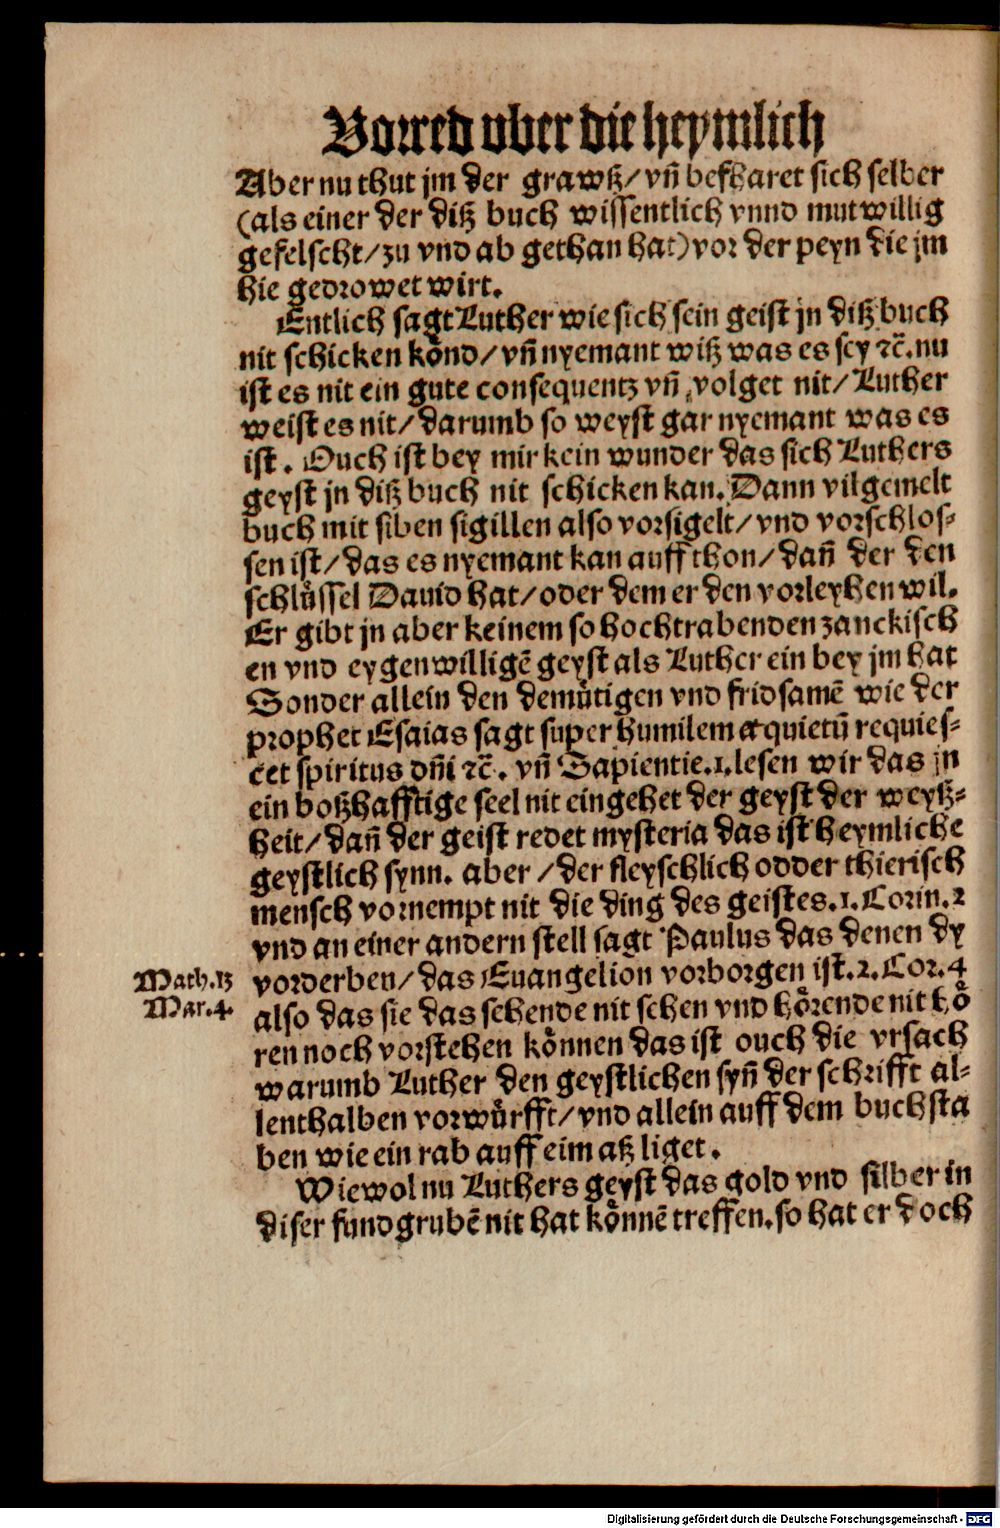 Vorred vber die heymlich
Aber nu thut jm der grawß/ vñ befharet sich selber
(als einer der diß buch wissentlich vnnd mutwillig
gefelscht/ zu vnd ab gethan hat) vor der peyn die jm
hie gedrowet wirt.
Entlich sagt Luther wie sich sein geist jn diß buch
nit schicken könd/ vñ nyemant wiß was es sey ꝛc̄. nu
ist es nit ein gute consequentz vñ volget nit/ Luther
weist es nit/ darumb so weyst gar nyemant was es
ist. Ouch ist bey mir kein wunder das sich Luthers
geyst jn diß buch nit schicken kan. Dann vilgemelt
buch mit siben sigillen also vorsigelt/ vnd vorschlos-
sen ist/ das es nyemant kan auff thon/ dañ der den
schlüssel Dauid hat/ oder dem er den vorleyhen wil.
Er gibt jn aber keinem so hochtrabenden zanckisch
en vnd eygenwilligē geyst als Luther ein bey jm hat
Sonder allein den demütigen vnd fridsamē wie der
prophet Esaias sagt super humilem et quietū requies-
cet spiritus dñi ꝛc̄. vñ Sapientie.1. lesen wir das jn
ein boßhafftige seel nit eingehet der geyst der weyß-
heit/ dañ der geist redet mysteria das ist heymliche
geystlich synn. aber/ der fleyschlich odder thierisch
mensch vornempt nit die ding des geistes.1. Corin.2
vnd an einer andern stell sagt Paulus das denen dy
vorderben/ das Euangelion vorborgen ist.2. Cor.4
also das sie das sehende nit sehen vnd hörende nit hö
ren noch vorstehen können das ist ouch die vrsach
warumb Luther den geystlichen syñ der schrifft al-
lenthalben vorwürfft/ vnd allein auff dem buchsta
ben wie ein rab auff eim atz liget.
Wiewol nu Luthers geyst das gold vnd silber in
diser fundgrubē nit hat könnē treffen. so hat er doch
Math.13
Mar.4.
Digitalisierung gefördert durch die Deutsche Forschungsgemeinschaft - DFG